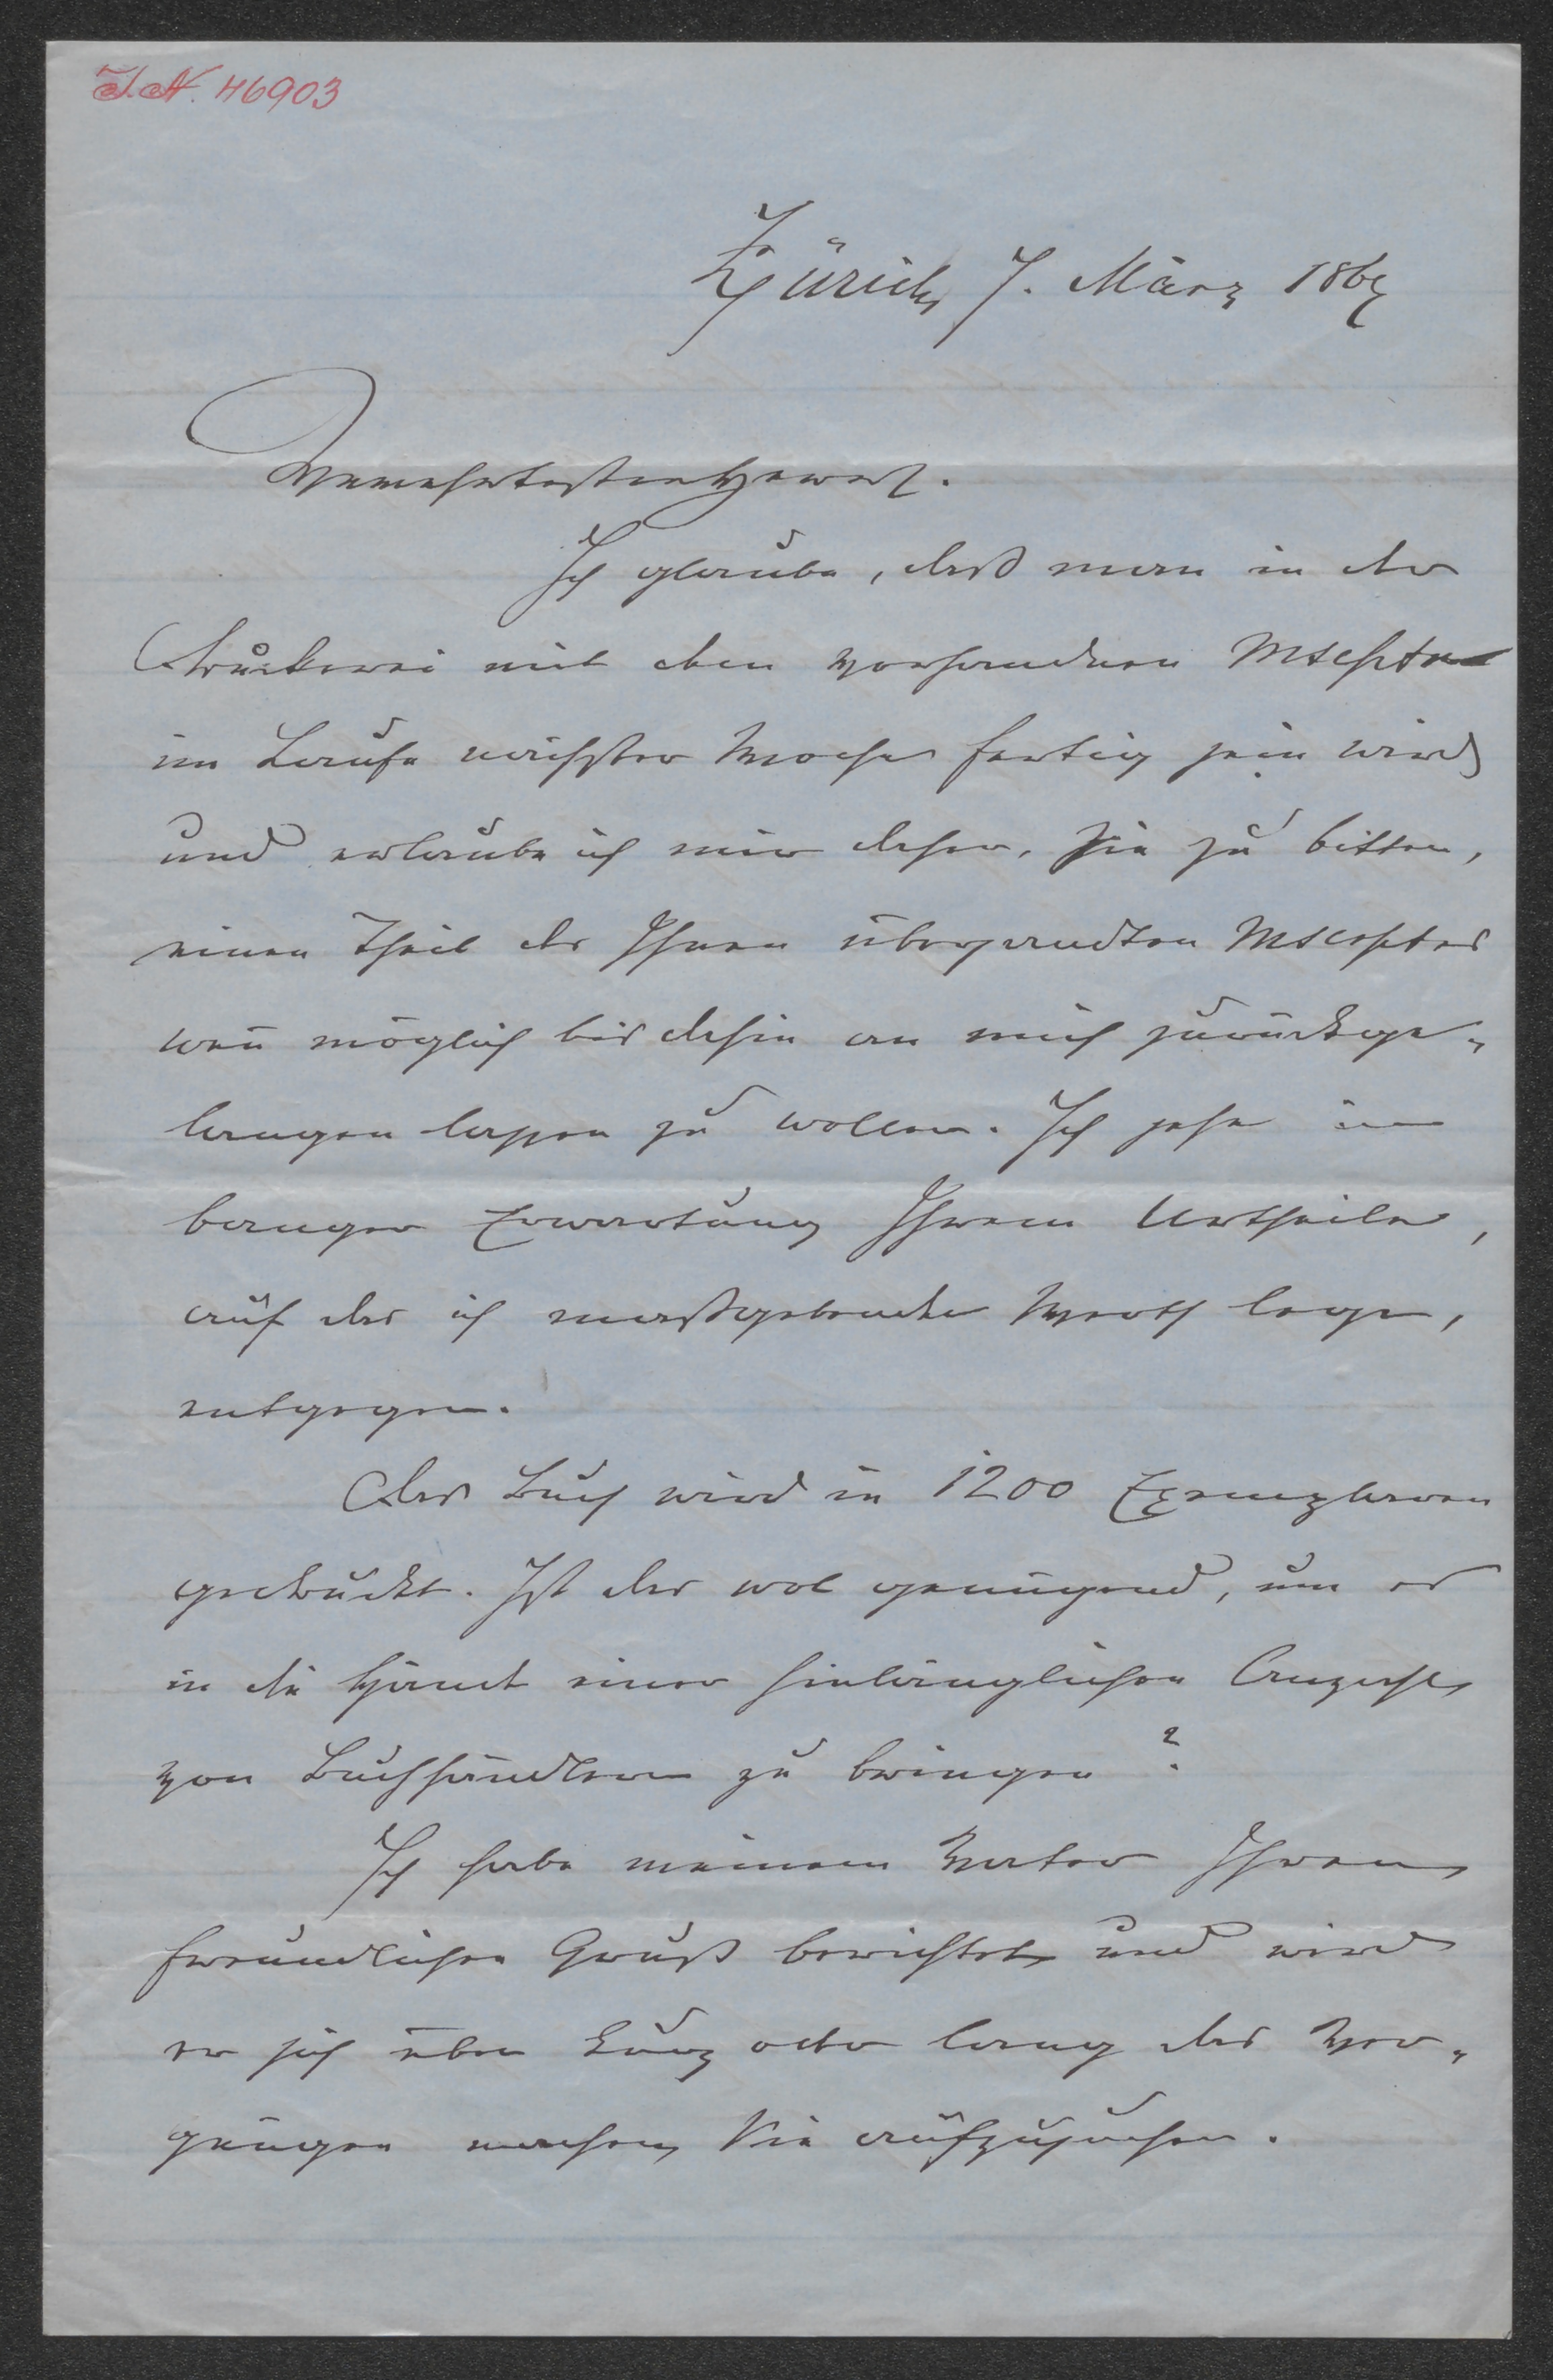 I.N. 46903
Zürich, 7. März 186
Verehrtester Herr.
Ich glaube, daß man in der
Druckerei mit dem vorhandnen Mscpte
im Laufe nächster Woche fertig sein wird
und erlaube ich mir daher, Sie zu bitten,
einen Theil des Ihnen übersandten Mscrptes
wen̄ möglich bis dahin an mich zurückge-
langen lassen zu wollen. Ich sehe in
banger Erwartung Ihrem Urtheile,
auf das ich maßgebenden Werth lege,
entgegen.
Das Buch wird in 1200 Exemplaren
gedruckt. Ist das wol genügend, um es
in die Hände einer hinlänglichen Anzahl
von Buchhändlern zu bringen?
Ich habe meinem Vater Ihren
freundlichen Gruß berichtet und wird
er sich über kurz oder lang das Ver-
gnügen machen, Sie aufzusuchen.